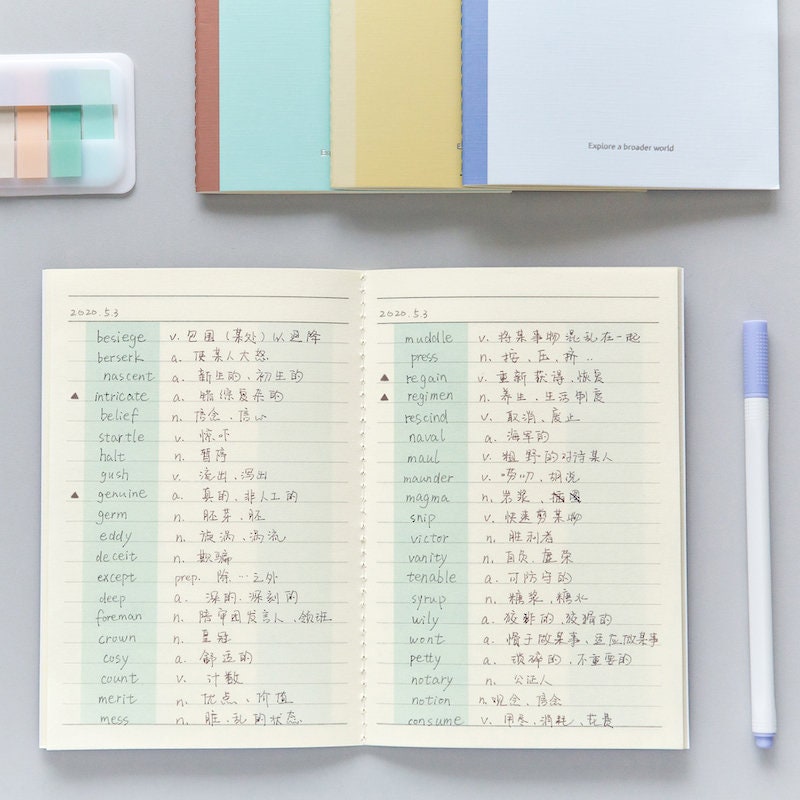 Explore a broader world
2020.5.3
besiege v. 包围(某处)以迫降
berserk a. 使某人大怒
nascent a. 新生的、初生的
▲ intricate a. 错综复杂的
belief n. 信念、信心
startle v. 惊吓
halt n. 暂停
gush v. 流出、泻出
▲ genuine a. 真的、非人工的
germ n. 胚芽、胚
eddy n. 旋涡、涡流
deceit n. 欺骗
except prep. 除…之外
deep a. 深的、深刻的
foreman n. 陪审团发言人、领班
crown n. 皇冠
cosy a. 舒适的
count v. 计数
merit n. 优点、价值
mess n. 脏、乱的状态
2020.5.3
muddle v. 将某事物混乱在一起
press n. 按、压、挤..
▲ regain v. 重新获得、恢复
▲ regimen n. 养生、生活制度
rescind v. 取消、废止
naval a. 海军的
maul v. 粗野的对待某人
maunder v. 唠叨、胡说
magma n. 岩浆、
snip v. 快速剪某物
victor n. 胜利者
vanity n. 自负、虚荣
tenable a. 可防守的
syrup n. 糖浆、糖水
wily a. 狡猾的
wont a. 惯于做某事、
petty a. 琐碎的、不重要的
notary n. 公证人
notion n. 观念、信念
consume v. 用尽、消耗、花费